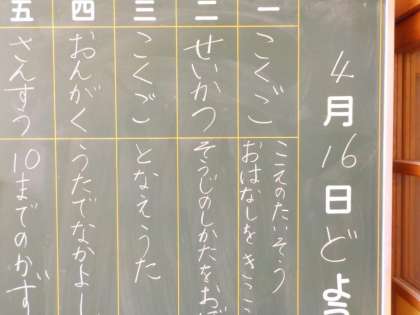 4月16日どよう
一
こくご
こえのたいそう
おはなしをきこう
二
せいかつ
そうじのしかたをおぼ
三
こくご
となえうた
四
おんがく
うたでなかよし
五
さんすう
10までのかず